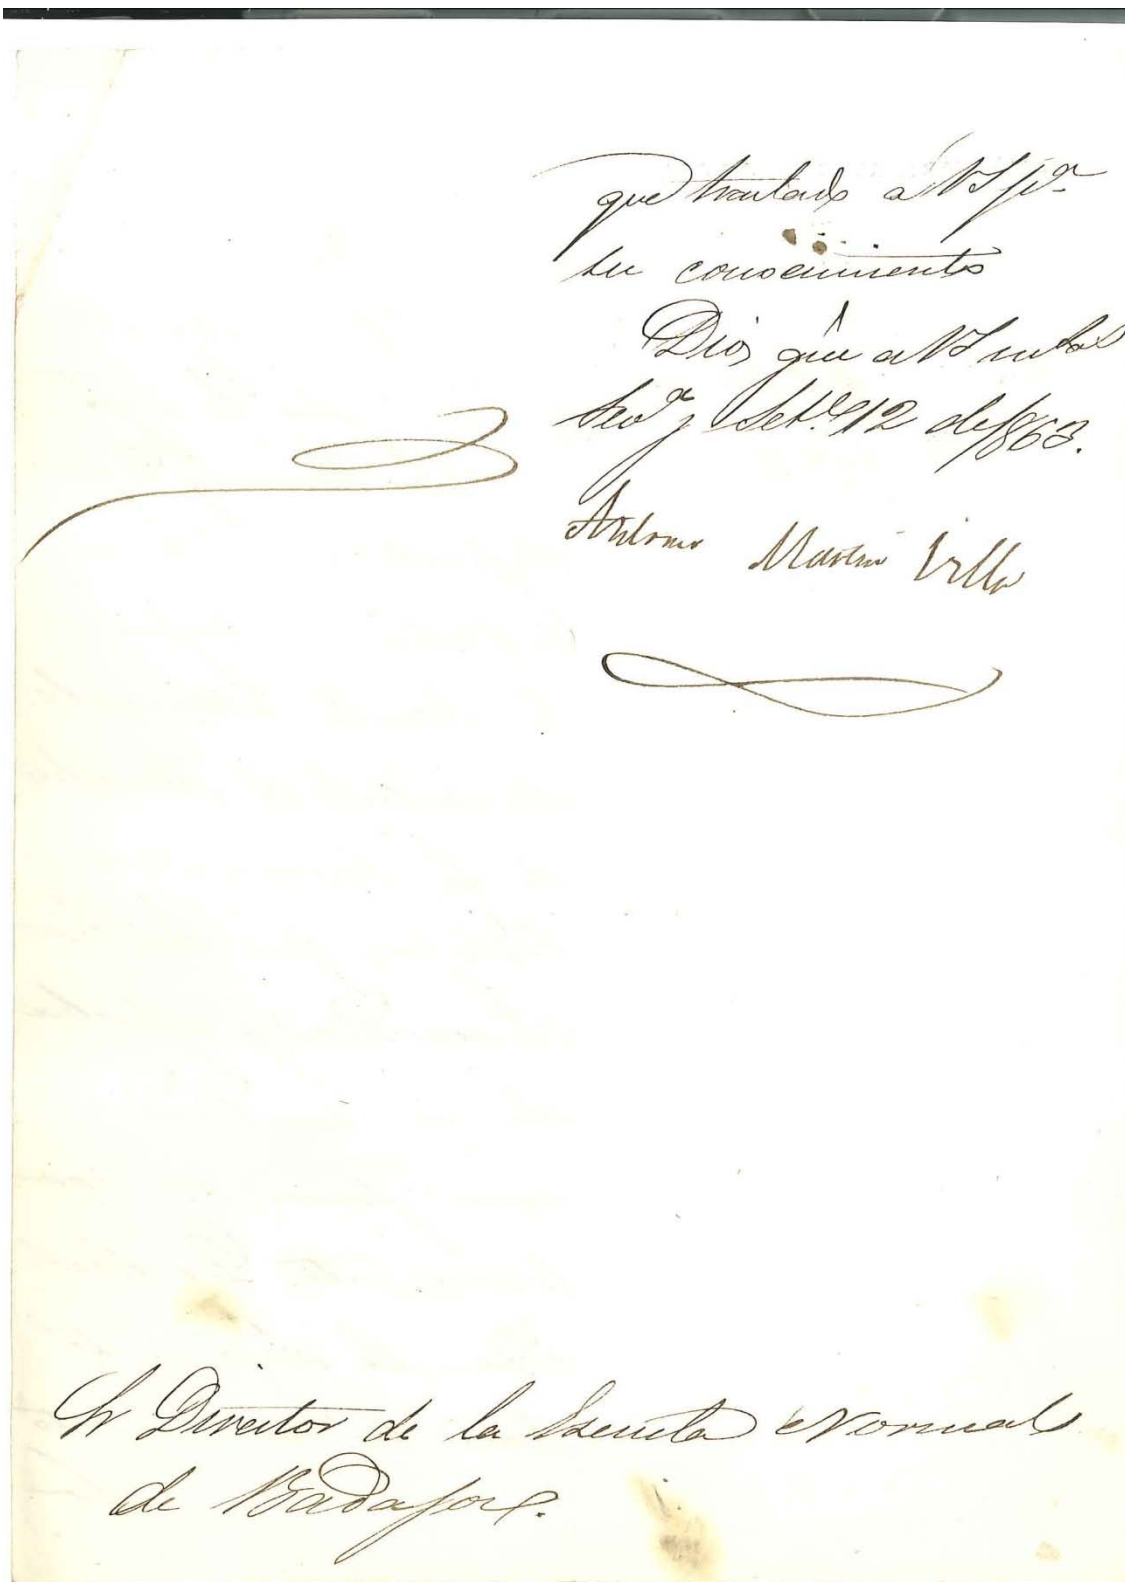 que traslado á VS pª
su conocimiento
Dios güe a VS m.s a.s
Sevª y Setᵉ 12 de 1863.
Antonio Martin Villa
Sr Director de la Escuela Normal
de Badajoz.